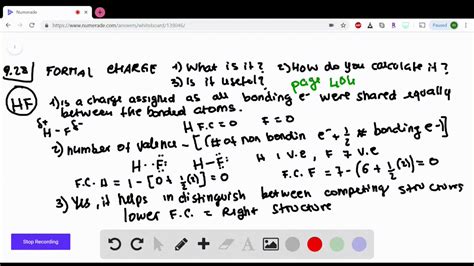 Numerade
https://www.numerade.com/answers/whiteboard/139046/
Paused
9.28 FORMAL CHARGE 1) What is it? 2) How do you calculate it?
3) Is it useful? page 404
HF 1) is a charge assigned as all bonding e⁻ were shared equally
between the bonded atoms.
δ+ δ-
H - F H F.C = 0 F = 0
2) number of valence - [(# of non bondin e⁻ + 1/2 # bonding e⁻)]
H··F: H-F: H 1 V.e, F 7 V.e
F.C. H = 1 - [0 + 1/2 (2)] = 0 F.C. F = 7 - (6 + 1/2 (2)) = 0
3) Yes, it helps in distinguish between competing structures
lower F.C. = Right structure
Stop Recording